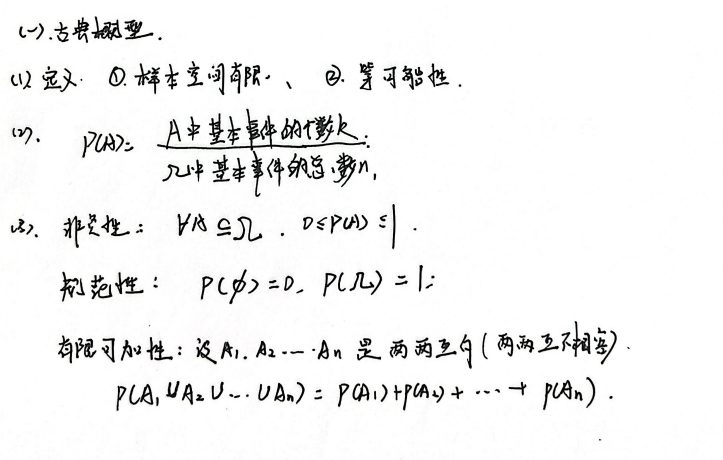 (一).古典概型.
(1) 定义. ①.样本空间有限、 ②.等可能性.
(2). P(A)= A中基本事件的个数k.
Ω中基本事件的总数n,
(3). 非负性: ∀A⊆Ω. 0≤P(A)≤1.
规范性: P(∅)=0. P(Ω)=1;
有限可加性:设A₁.A₂....An是两两互斥(两两互不相容).
P(A₁∪A₂∪...∪An)=P(A₁)+P(A₂)+...+P(An).